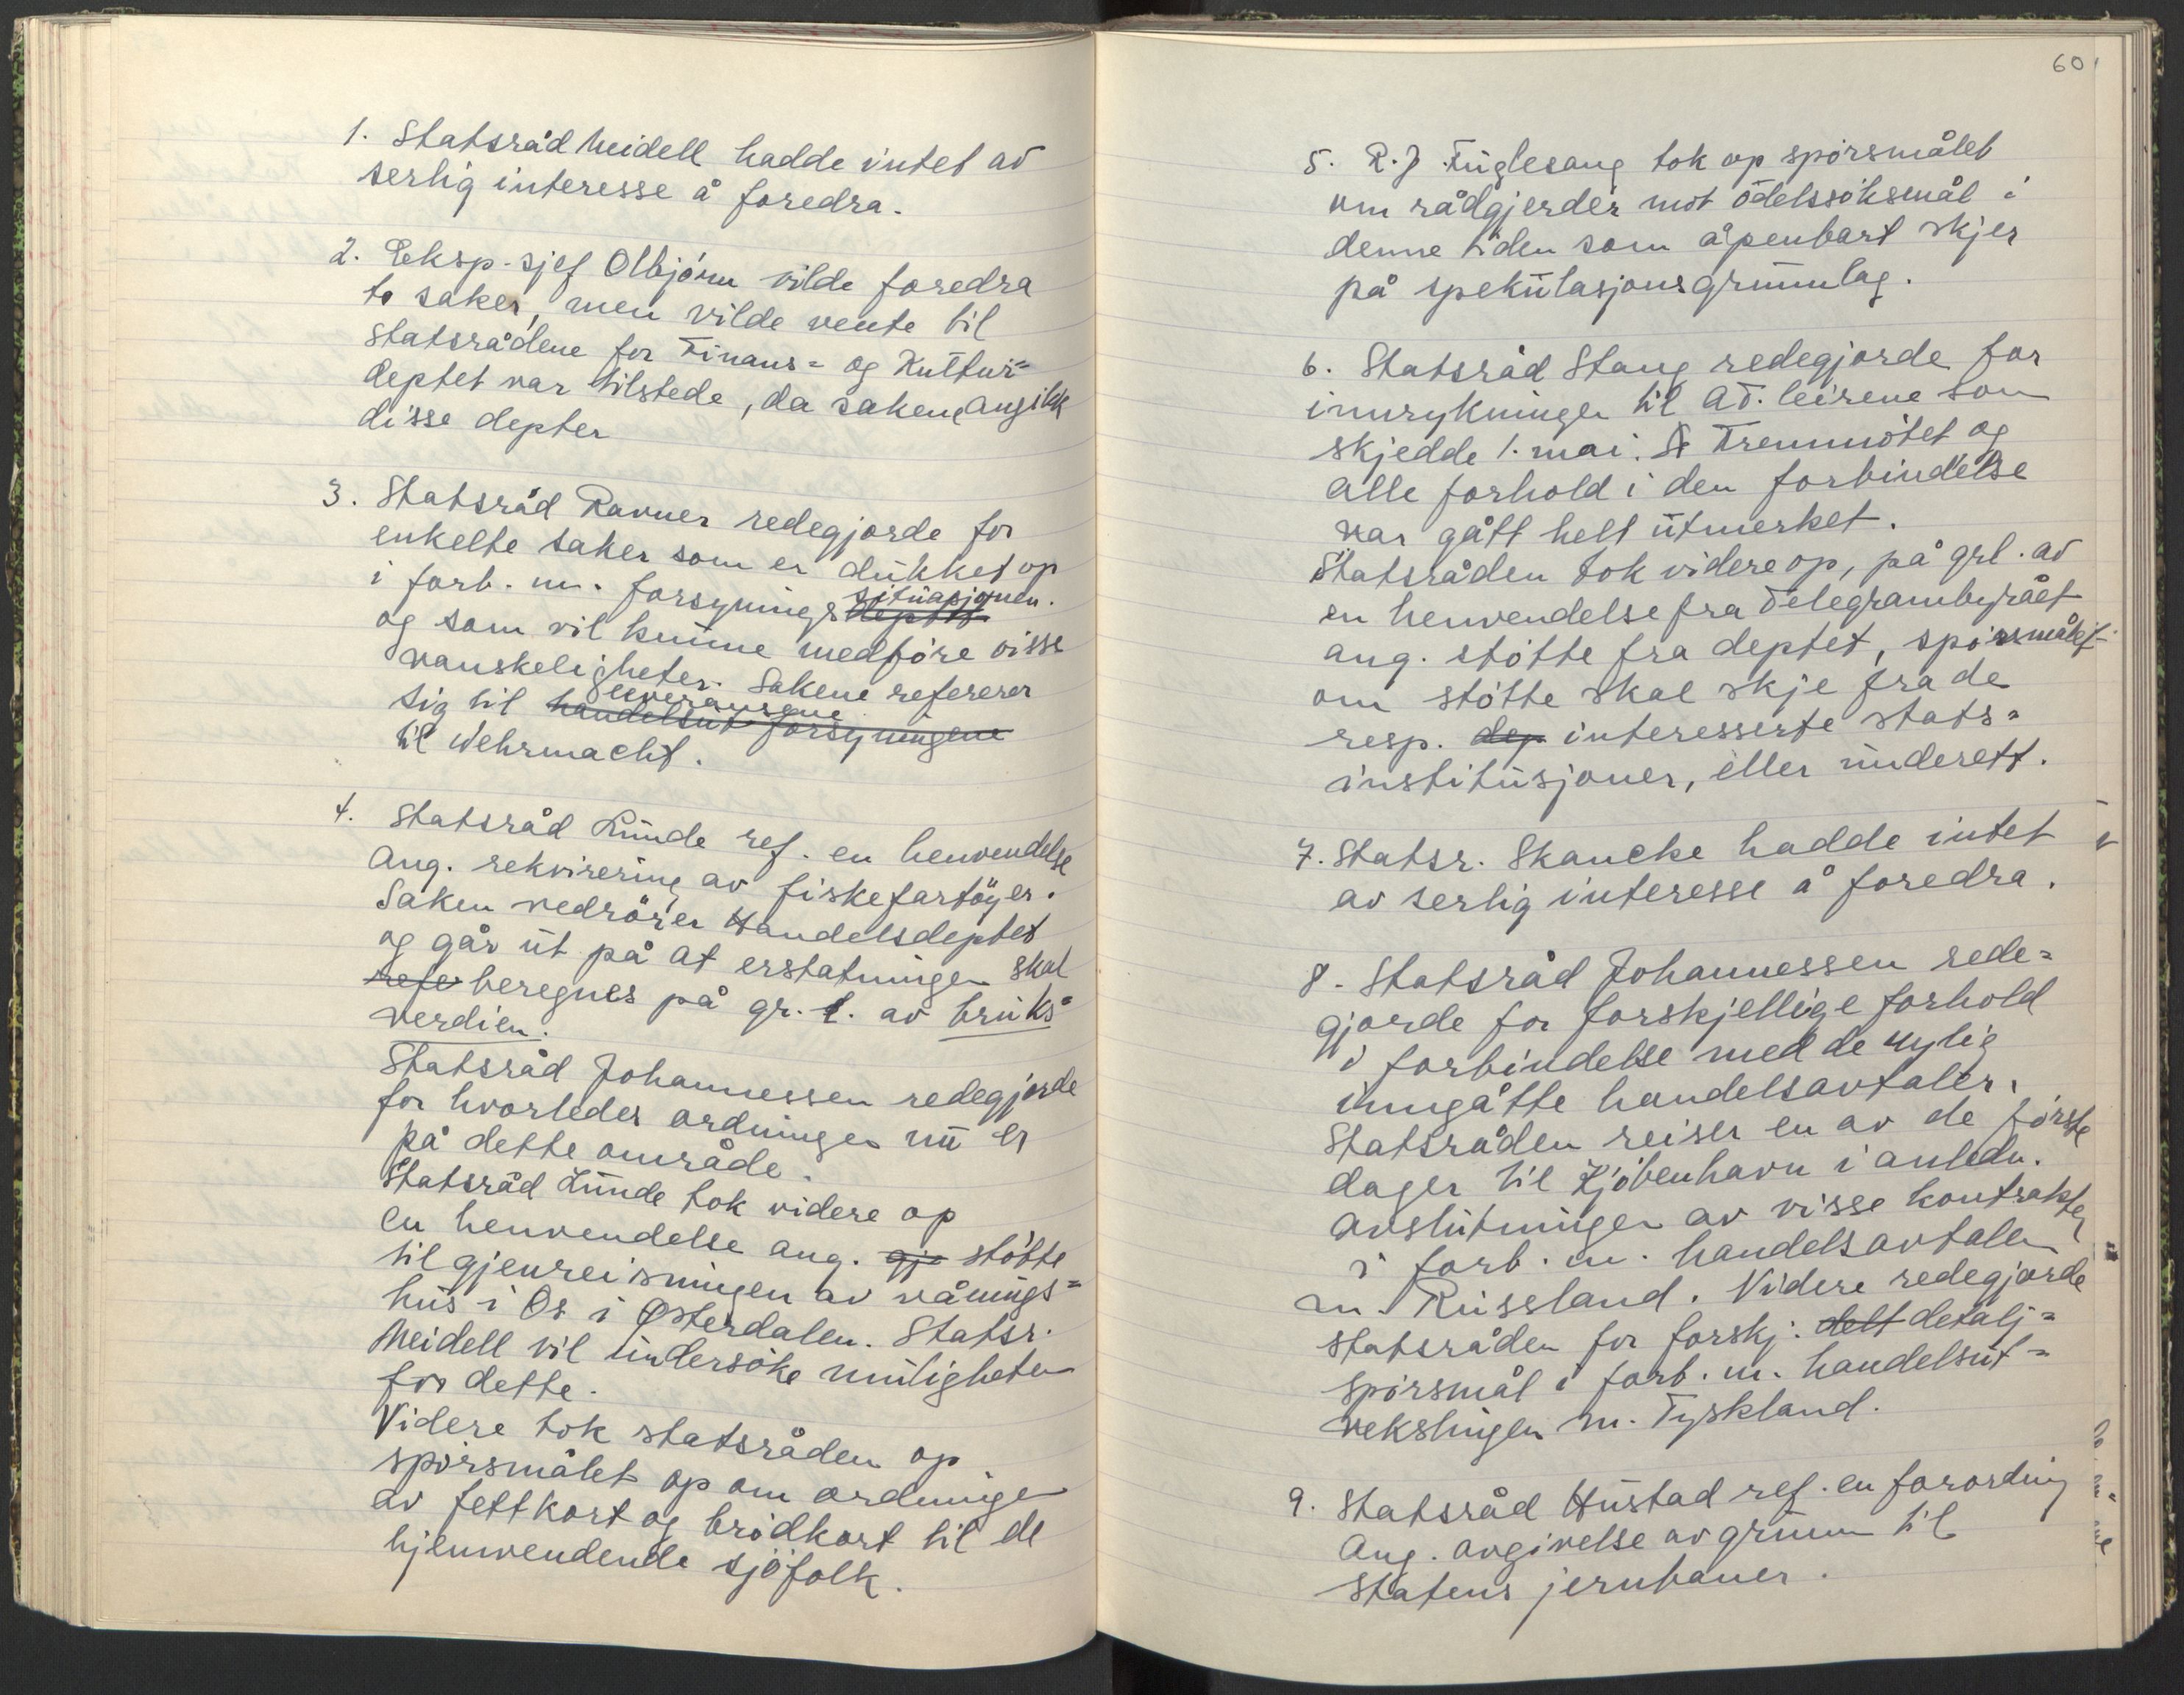 1. Statsråd Meidell hadde intet av
serlig interesse å foredra.
2. Eksp.-sjef Olbjörn vilde foredra
to saker, men vilde vente til
statsrådene for Finans- og Kultur-
deptet var tilstede, da sakene angikk
disse depter
3. Statsråd Ravner redegjorde for
enkelte saker som er dukket op
i forb. m. forsynings situasjonen.
og som vil kunne medföre visse
vanskeligheter. Sakene refererer
sig til handelsut forsyningene leveransene
til Wehrmacht.
4. Statsråd Lunde ref. en henvendelse
ang. rekvirering av fiskefartöyer.
Saken vedrörer Handelsdeptet
og går ut på at erstatningen skal
refe beregnes på gr. l. av bruks-
verdien.
Statsråd Johannessen redegjorde
for hvorledes ordningen nu er
på dette område.
Statsråd Lunde tok videre op
en henvendelse ang. gje stötte
til gjenreisningen av vånings-
hus i Os i Østerdalen. Statsr.
Meidell vil undersöke muligheten
for dette.
Videre tok statsråden op
spörsmålet op om ordningen
av fettkort og brödkort til de
hjemvendende sjöfolk.
60
5. R.J. Fuglesang tok op spörsmålet
om rådgjerder mot odelssöksmål i
denne tiden som åpenbart skjer
på spekulasjonsgrunnlag.
6. Statsråd Stang redegjorde for
innrykningen til AT. leirene som
skjedde 1. mai. Fremmötet og
alle forhold i den forbindelse
var gått helt utmerket.
Statsråden tok videre op, på grl. av
en henvendelse fra Telegrambyrået
ang. stötte fra deptet, spörsmålet
om stötte skal skje fra de
resp. dep interesserte stats-
institusjoner, eller underett.
7. Statsr. Skancke hadde intet
av serlig interesse å foredra.
8. Statsråd Johannessen rede-
gjorde for forskjellige forhold
i forbindelse med de nylig
inngåtte handelsavtaler.
Statsråden reiser en av de förste
dager til Kjöbenhavn i anledn.
avslutningen av visse kontrakter
i forb. m. handelsavtalen
m. Russland. Videre redegjorde
statsråden for forskj. delt detalj-
spörsmål i forb. m. handelsut-
vekslingen m. Tyskland.
9. Statsråd Hustad ref. en forordning
ang. avgivelse av grunn til
statens jernbaner.